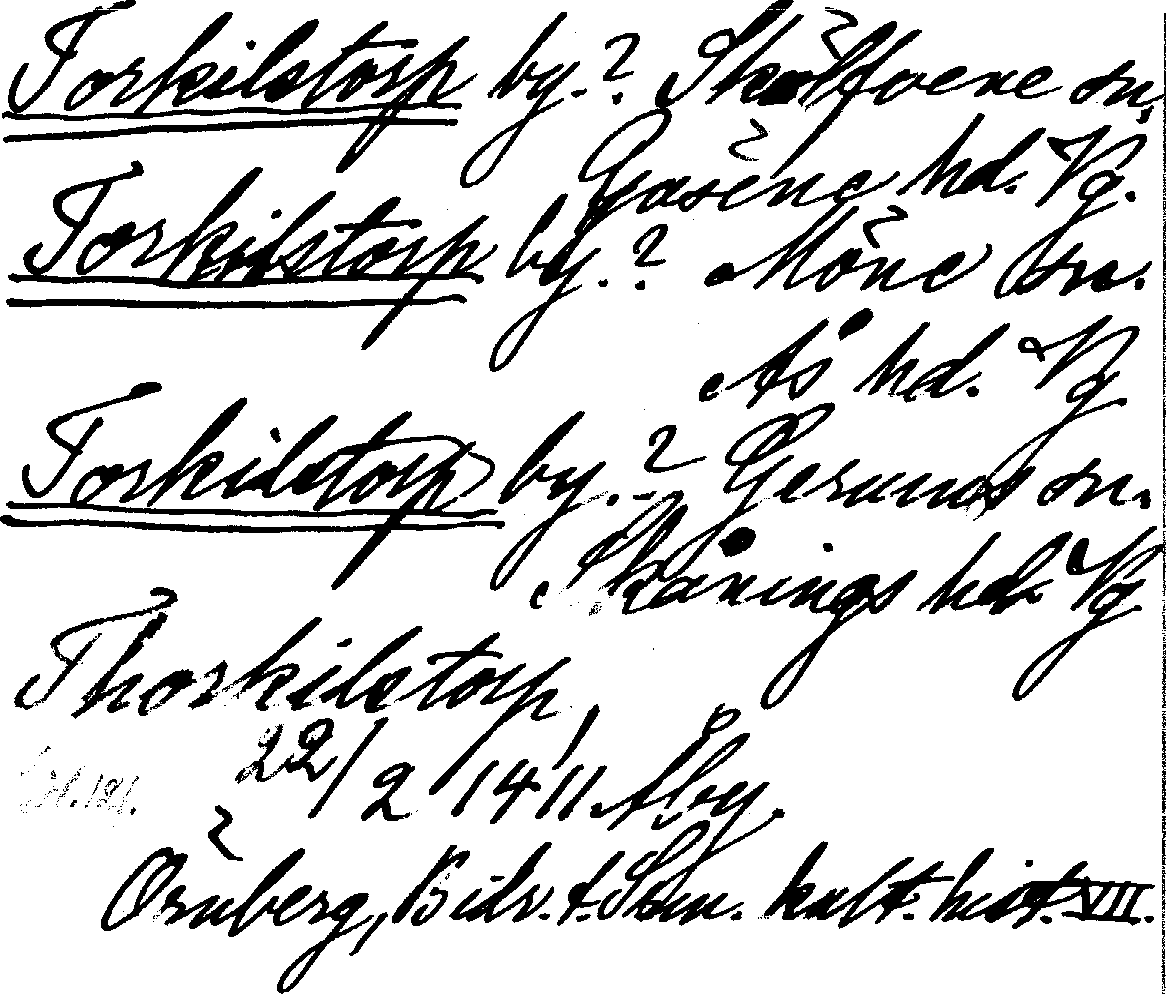 Torkilstorp by.? Skölfvene sn,
Gäsene hd. Vg.
Torkilstorp by.? Möne sn.
Ås hd. Vg
Torkilstorp by.? Gerums sn.
Skånings hd. Vg
Thorkilstorp,
22/2 1411. Åby.
Örnberg, Bidr. t. Sken. kult. hist. VII.